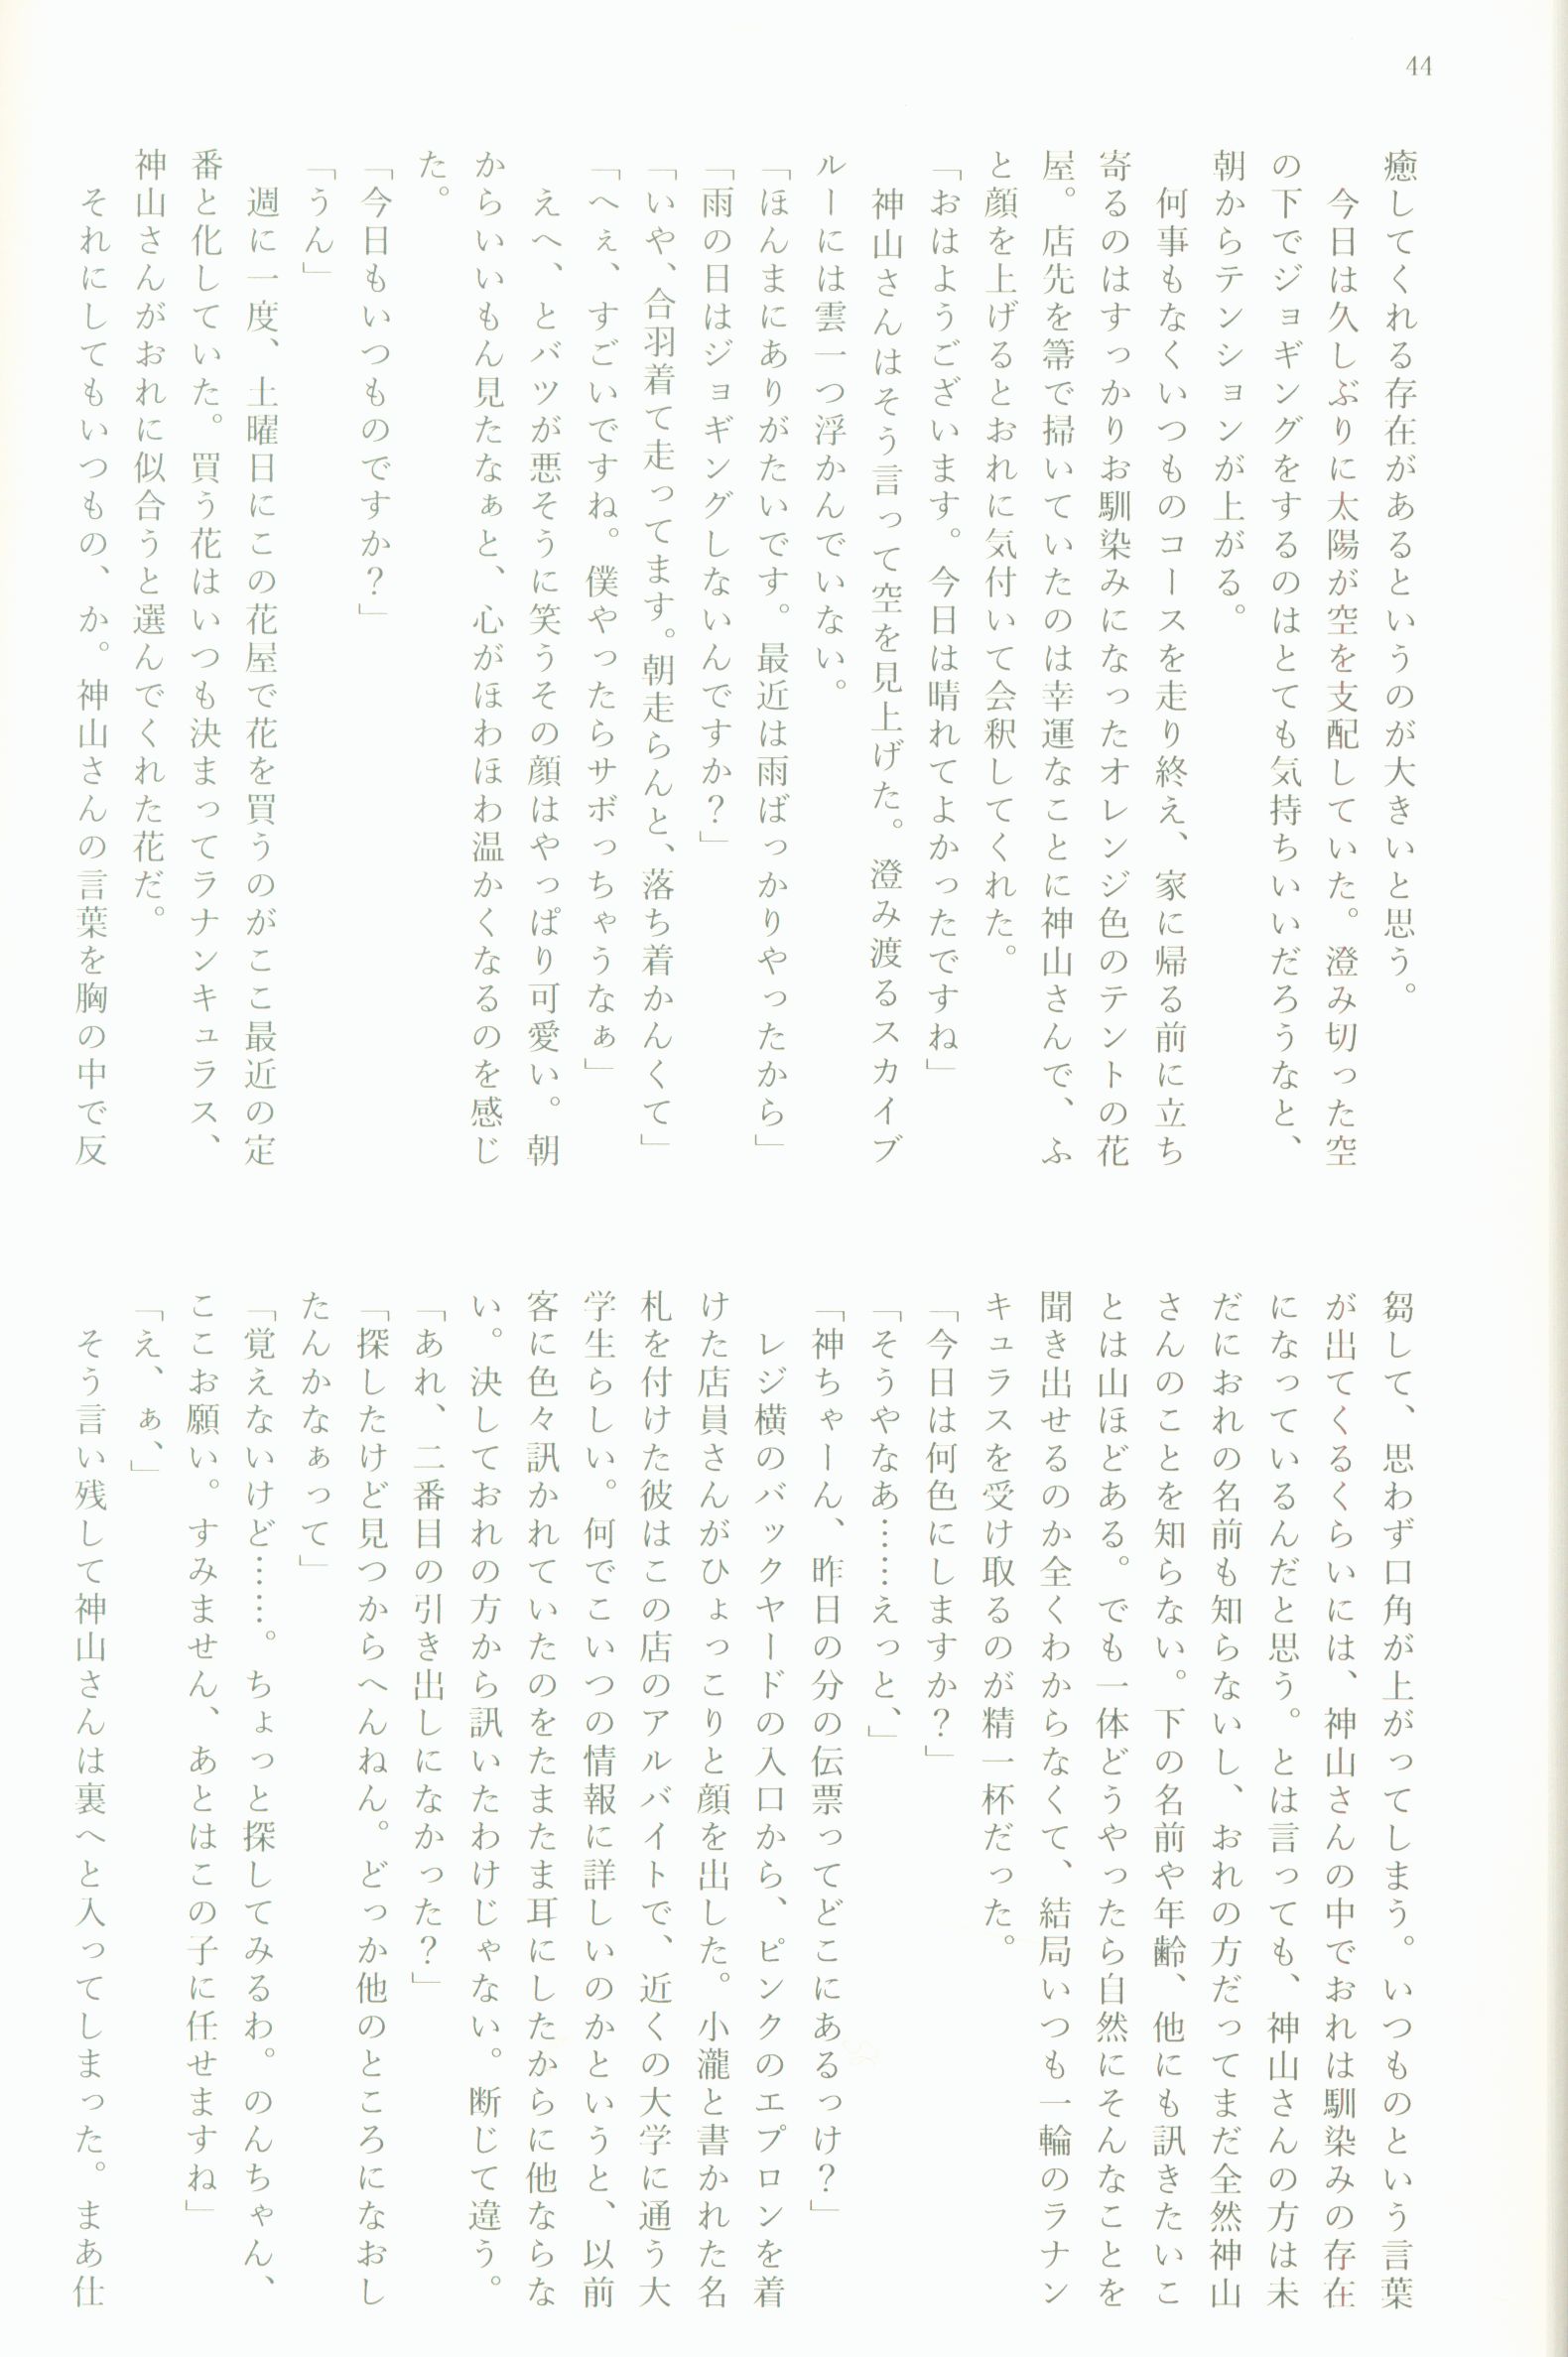 44
癒してくれる存在があるというのが大きいと思う。
　今日は久しぶりに太陽が空を支配していた。澄み切った空
の下でジョギングをするのはとても気持ちいいだろうなと、
朝からテンションが上がる。
　何事もなくいつものコースを走り終え、家に帰る前に立ち
寄るのはすっかりお馴染みになったオレンジ色のテントの花
屋。店先を箒で掃いていたのは幸運なことに神山さんで、ふ
と顔を上げるとおれに気付いて会釈してくれた。
「おはようございます。今日は晴れてよかったですね」
　神山さんはそう言って空を見上げた。澄み渡るスカイブ
ルーには雲一つ浮かんでいない。
「ほんまにありがたいです。最近は雨ばっかりやったから」
「雨の日はジョギングしないんですか？」
「いや、合羽着て走ってます。朝走らんと、落ち着かんくて」
「へぇ、すごいですね。僕やったらサボっちゃうなぁ」
　えへ、とバツが悪そうに笑うその顔はやっぱり可愛い。朝
からいいもん見たなぁと、心がほわほわ温かくなるのを感じ
た。
「今日もいつものですか？」
「うん」
　週に一度、土曜日にこの花屋で花を買うのがここ最近の定
番と化していた。買う花はいつも決まってラナンキュラス、
神山さんがおれに似合うと選んでくれた花だ。
　それにしてもいつもの、か。神山さんの言葉を胸の中で反
芻して、思わず口角が上がってしまう。いつものという言葉
が出てくるくらいには、神山さんの中でおれは馴染みの存在
になっているんだと思う。とは言っても、神山さんの方は未
だにおれの名前も知らないし、おれの方だってまだ全然神山
さんのことを知らない。下の名前や年齢、他にも訊きたいこ
とは山ほどある。でも一体どうやったら自然にそんなことを
聞き出せるのか全くわからなくて、結局いつも一輪のラナン
キュラスを受け取るのが精一杯だった。
「今日は何色にしますか？」
「そうやなあ……えっと、」
「神ちゃーん、昨日の分の伝票ってどこにあるっけ？」
　レジ横のバックヤードの入口から、ピンクのエプロンを着
けた店員さんがひょっこりと顔を出した。小瀧と書かれた名
札を付けた彼はこの店のアルバイトで、近くの大学に通う大
学生らしい。何でこいつの情報に詳しいのかというと、以前
客に色々訊かれていたのをたまたま耳にしたからに他ならな
い。決しておれの方から訊いたわけじゃない。断じて違う。
「あれ、二番目の引き出しになかった？」
「探したけど見つからへんねん。どっか他のところになおし
たんかなぁって」
「覚えないけど……。ちょっと探してみるわ。のんちゃん、
ここお願い。すみません、あとはこの子に任せますね」
「え、ぁ、」
　そう言い残して神山さんは裏へと入ってしまった。まあ仕